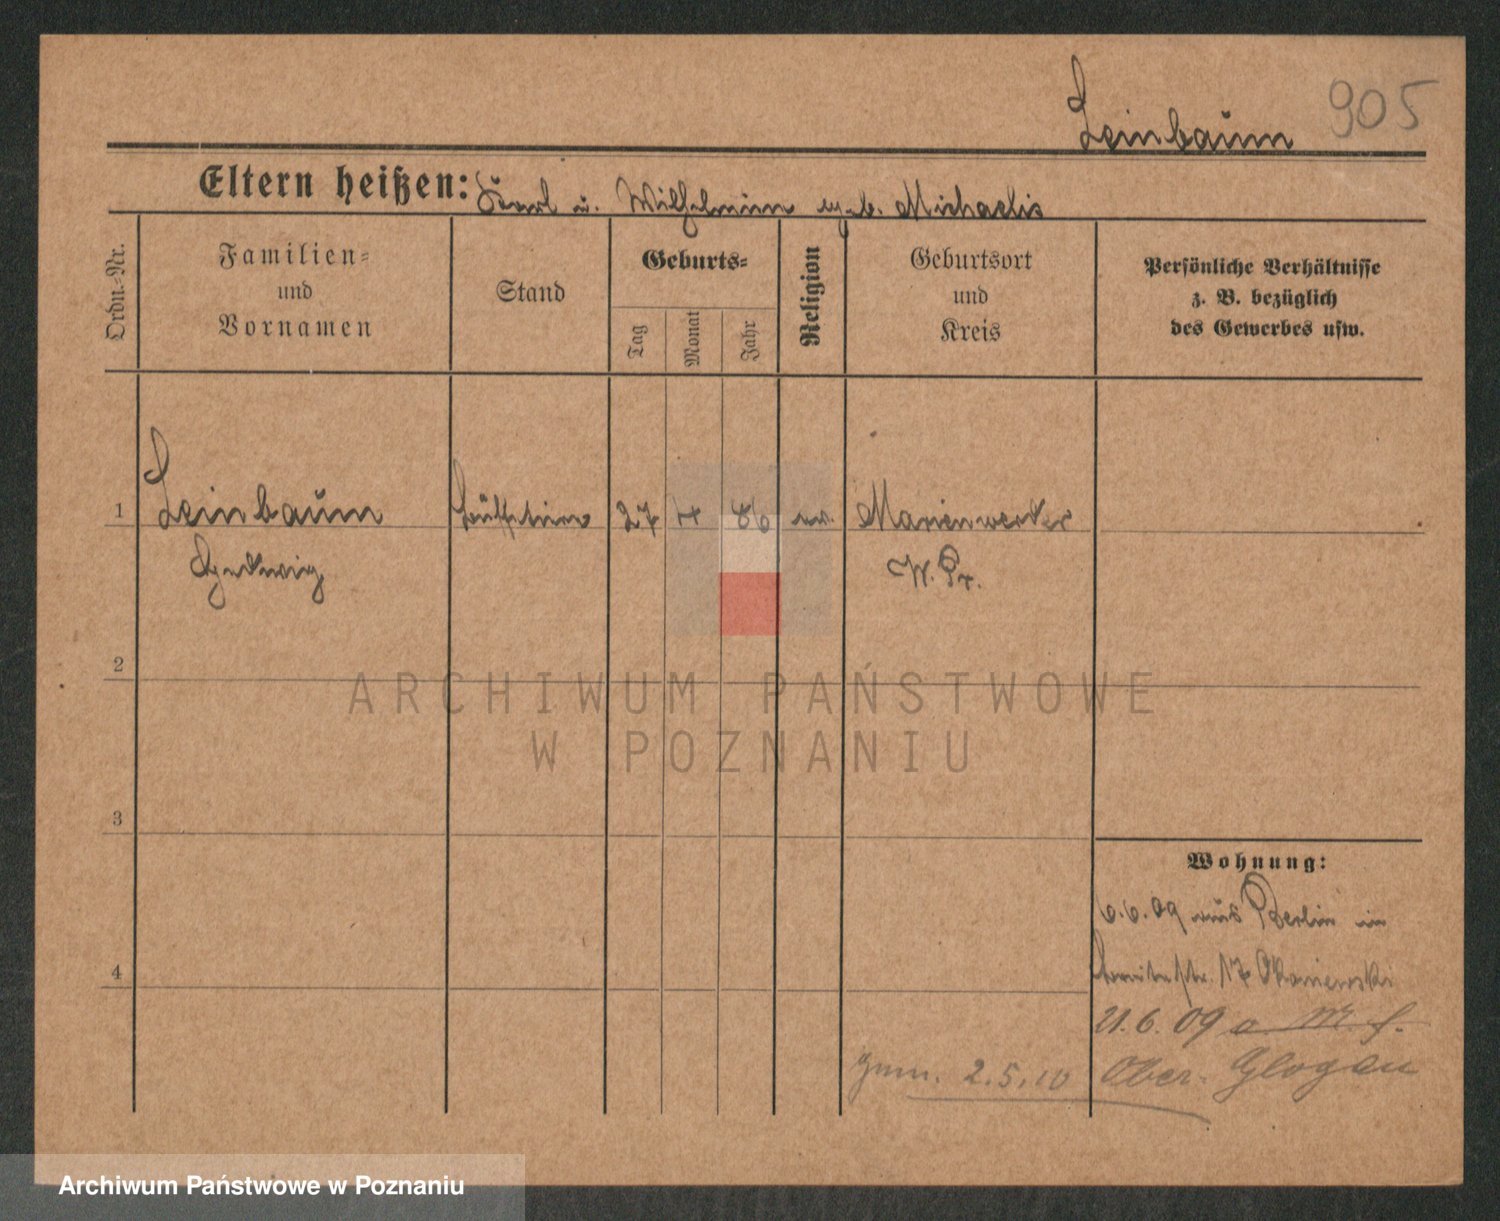 Leinbaum 905
Eltern heißen: Karl u. Wilhelmine geb. Michaelis
Ordn.-Nr.
Familien-
und
Vornamen
Stand
Geburts-
Tag
Monat
Jahr
Religion
Geburtsort
und
Kreis
Persönliche Verhältnisse
z. B. bezüglich
des Gewerbes usw.
1 Leinbaum 27 4 86 ev. Marienwerder
Hedwig W. Pr.
2
3
4
ARCHIWUM PAŃSTWOWE
W POZNANIU
Wohnung:
6.6.09 aus Berlin in
17
21.6.09
Ober-Glogau
2.5.10
Archiwum Państwowe w Poznaniu